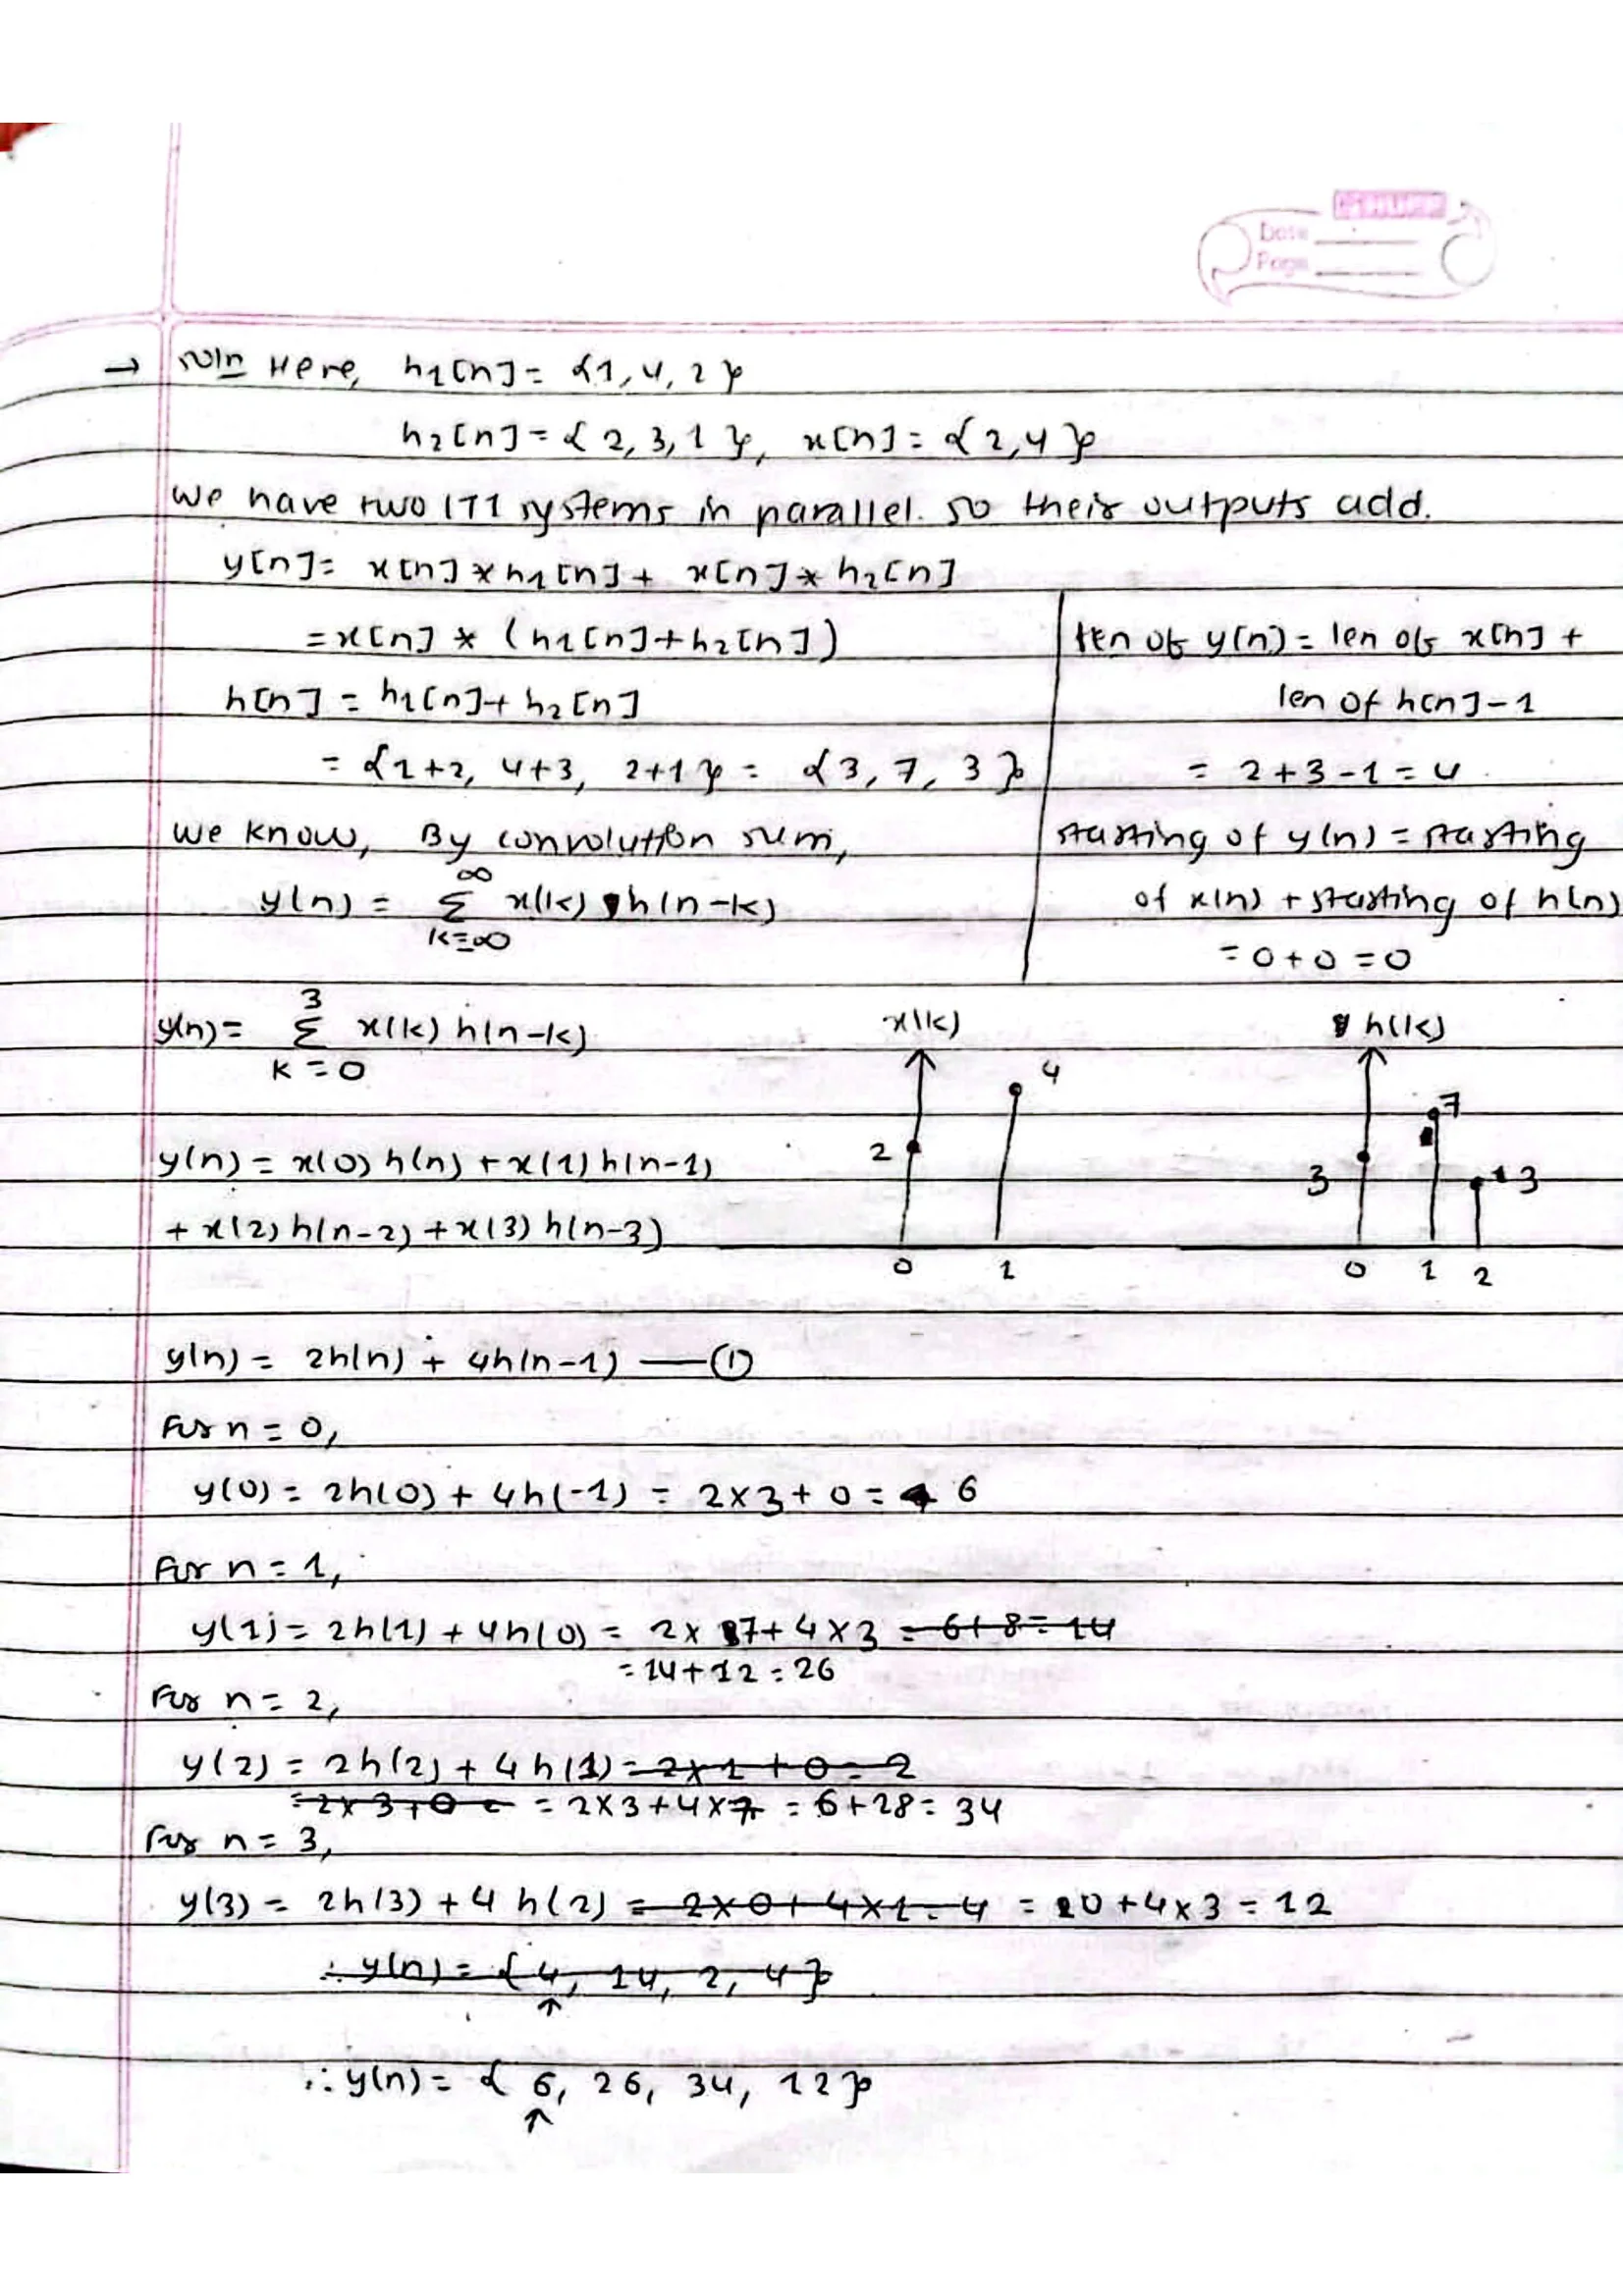 Date
Page
→ Soln Here, h1[n] = {1, 4, 2}
h2[n] = {2, 3, 1}, x[n] = {2,4}
We have two LTI systems in parallel. so their outputs add.
y[n] = x[n] * h1[n] + x[n] * h2[n]
= x[n] * (h1[n] + h2[n])
h[n] = h1[n] + h2[n]
= {1+2, 4+3, 2+1} = {3, 7, 3}
len of y(n) = len of x[n] +
len of h[n] - 1
= 2+3-1 = 4
starting of y(n) = starting
of x(n) + starting of h(n)
= 0+0 = 0
We know, By convolution sum,
∞
y(n) = Σ x(k) h(n-k)
k=-∞
3
y(n) = Σ x(k) h(n-k)
k=0
y(n) = x(0) h(n) + x(1) h(n-1)
+ x(2) h(n-2) + x(3) h(n-3)
x(k)
4
2
0 1
h(k)
7
3 3
0 1 2
y(n) = 2h(n) + 4h(n-1) — ①
For n = 0,
y(0) = 2h(0) + 4h(-1) = 2×3 + 0 = 6
For n = 1,
y(1) = 2h(1) + 4h(0) = 2×7 + 4×3 = 6+8 = 14
= 14+12 = 26
For n = 2,
y(2) = 2h(2) + 4h(1) = 2×1 + 0 = 2
= 2×3+0 = = 2×3+4×7 = 6+28 = 34
For n = 3,
y(3) = 2h(3) + 4h(2) = 2×0 + 4×1 = 4 = 0+4×3 = 12
∴ y(n) = {4, 14, 2, 4}
↑
∴ y(n) = {6, 26, 34, 12}
↑